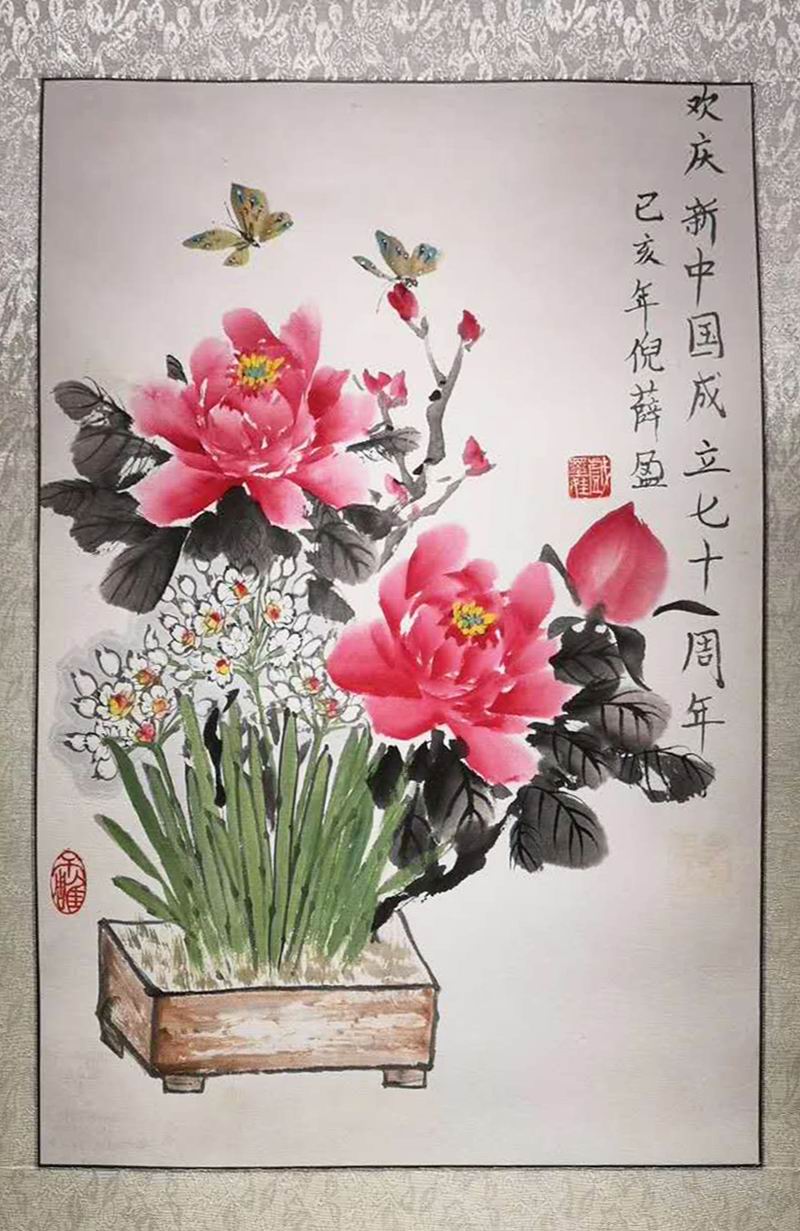 欢庆新中国成立七十周年
己亥年倪薛盈